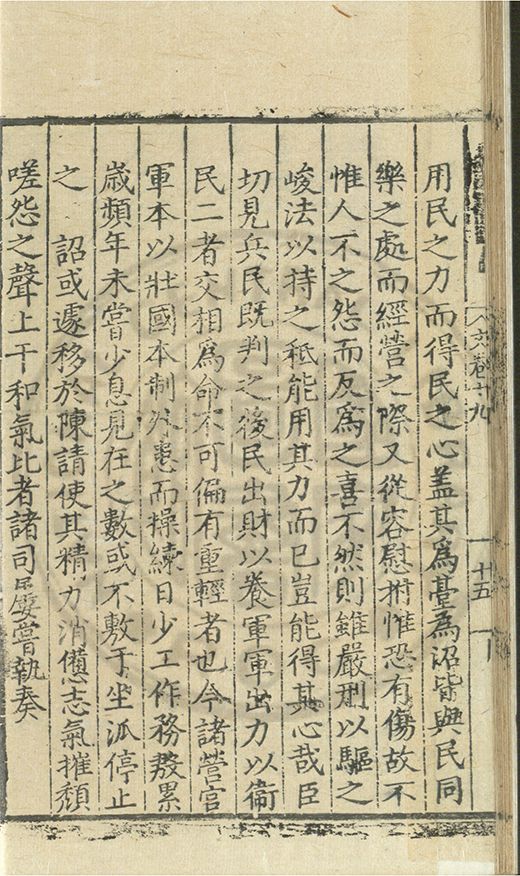 文卷十九
十五
用民之力而得民之心盖其為臺為沼皆與民同
樂之處而經營之際又從容慰拊惟恐有傷故不
惟人不之怨而反為之喜不然則雖嚴刑以驅之
峻法以持之秪能用其力而已豈能得其心哉臣
切見兵民既判之後民出財以養軍軍出力以衛
民二者交相為命不可偏有重輕者也今諸營官
軍本以壯國本制外患而操練日少工作務殷累
歲頻年未嘗少息見在之數或不敷于坐派停止
之　詔或遽移於陳請使其精力消憊志氣摧頹
嗟怨之聲上干和氣比者諸司屢嘗執奏